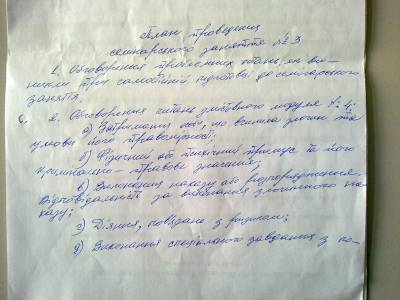 План проведення
семінарского заняття №3
1. Обговорення проблемних питань, які ви-
никли при самостійній підготовці до семінарського
заняття.
2. Обговорення питань змістовного модуля № 4:
а) Затримання особи, що вчинила злочин та
умови його правомірності;
б) Фізичний або психічний примус та його
кримінально-правове значення;
в) Виконання наказу або розпорядження.
Відповідальність за виконання злочинного на-
казу;
г) Діяння, пов'язане з ризиком;
д) Виконання спеціального завдання з по-